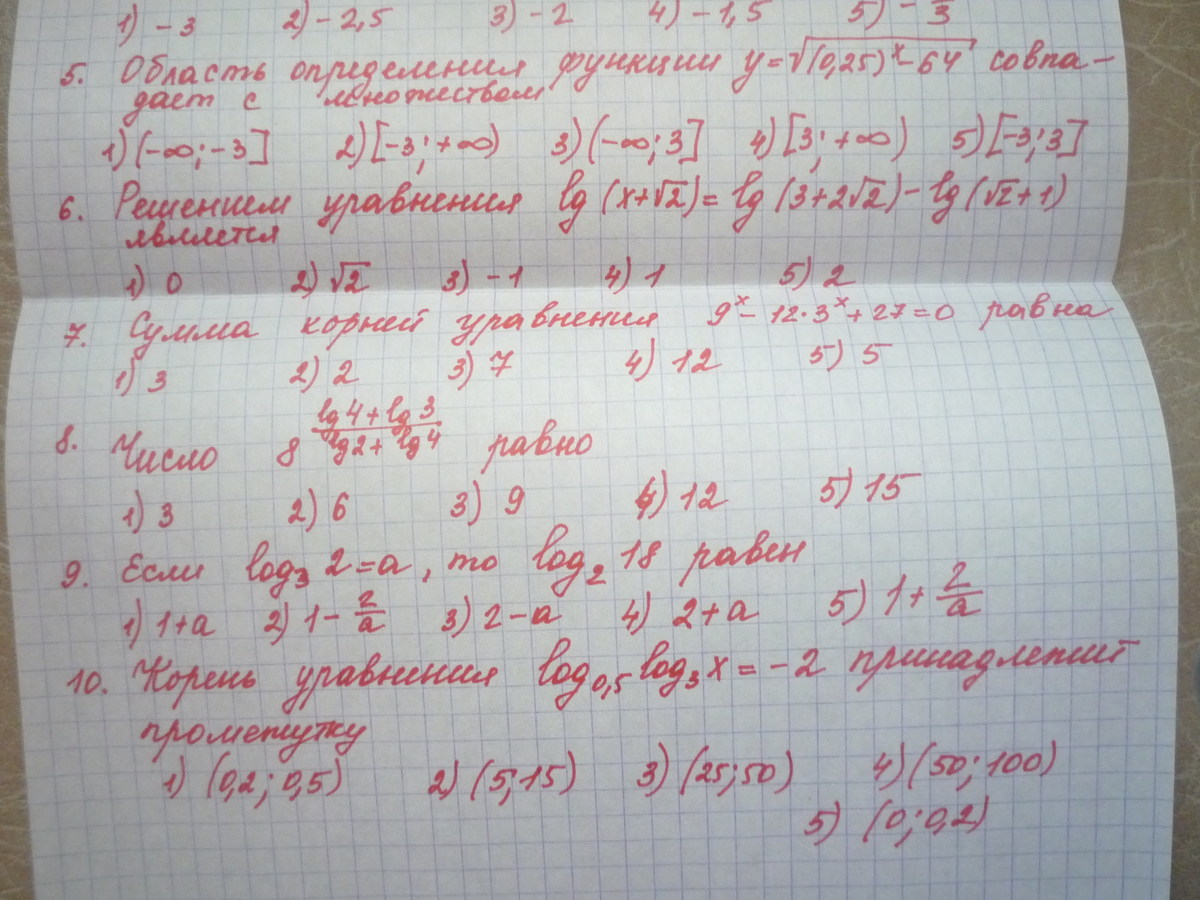 1) -3 2) -2,5 3) -2 4) -1,5 5) -
5. Область определения функции y=√((0,25)^x - 64) совпа-
дает с множеством
1) (-∞; -3] 2) [-3; +∞) 3) (-∞; 3] 4) [3; +∞) 5) [-3; 3]
6. Решением уравнения lg (x+√2) = lg (3+2√2) - lg (√2+1)
является
1) 0 2) √2 3) -1 4) 1 5) 2
7. Сумма корней уравнения 9^x - 12·3^x + 27 = 0 равна
1) 3 2) 2 3) 7 4) 12 5) 5
8. Число 8^((lg4 + lg3)/(lg2 + lg4)) равно
1) 3 2) 6 3) 9 4) 12 5) 15
9. Если log₃ 2 = a, то log₂ 18 равен
1) 1+a 2) 1 - 2/a 3) 2-a 4) 2+a 5) 1 + 2/a
10. Корень уравнения log₀,₅ log₃ x = -2 принадлежит
промежутку
1) (0,2; 0,5) 2) (5; 15) 3) (25; 50) 4) (50; 100)
5) (0; 0,2)